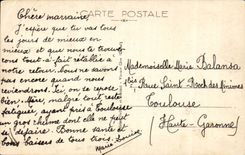 CARTE POSTALE
Chère marraine,
J'espère que tu vas tous
les jours de mieux en
mieux et que nous te trouve-
rons tout-à-fait rétablie à
notre retour. Nous ne savons
pas encore quand nous
reviendrons. Ici on se repose
bien. Mais, malgré tout cette
fatigue, ayant pris à Toulouse
un gros rhume dont elle ne peut
se défaire. Bonne santé et
bons baisers de tous trois.
Marie-Louise
Mademoiselle Marie Balansa
Rue Saint-Roch des Minimes
Toulouse
Haute-Garonne